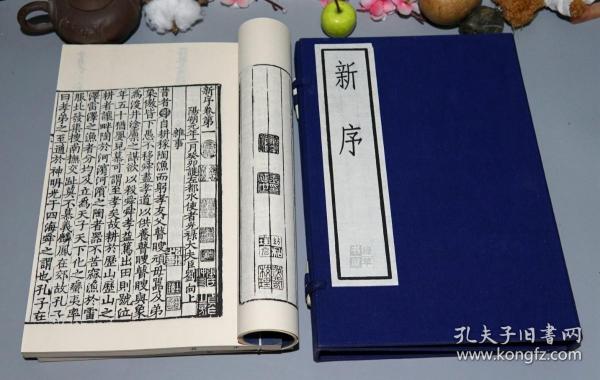 新序卷第一
陽朔元年二月癸卯護左都水使者光祿大夫臣劉向上
雜事
昔者舜自耕稼陶漁而躬孝友父瞽瞍頑母嚚及弟
象傲皆下愚不移舜盡孝道以供養瞽瞍瞽瞍與象
為浚井塗廩之謀欲以殺舜舜孝益篤出田則號泣
年五十猶嬰兒慕可謂至孝矣故耕於歷山歷山之
耕者讓畔陶於河濱河濱之陶者器不苦窳漁於雷
澤雷澤之漁者分均及立為天子天下化之蠻夷率
服北發渠搜南撫交阯莫不慕義麟鳳在郊故孔子
曰孝弟之至通於神明光于四海舜之謂也孔子在
新序
孔夫子旧书网
www.kongfz.com